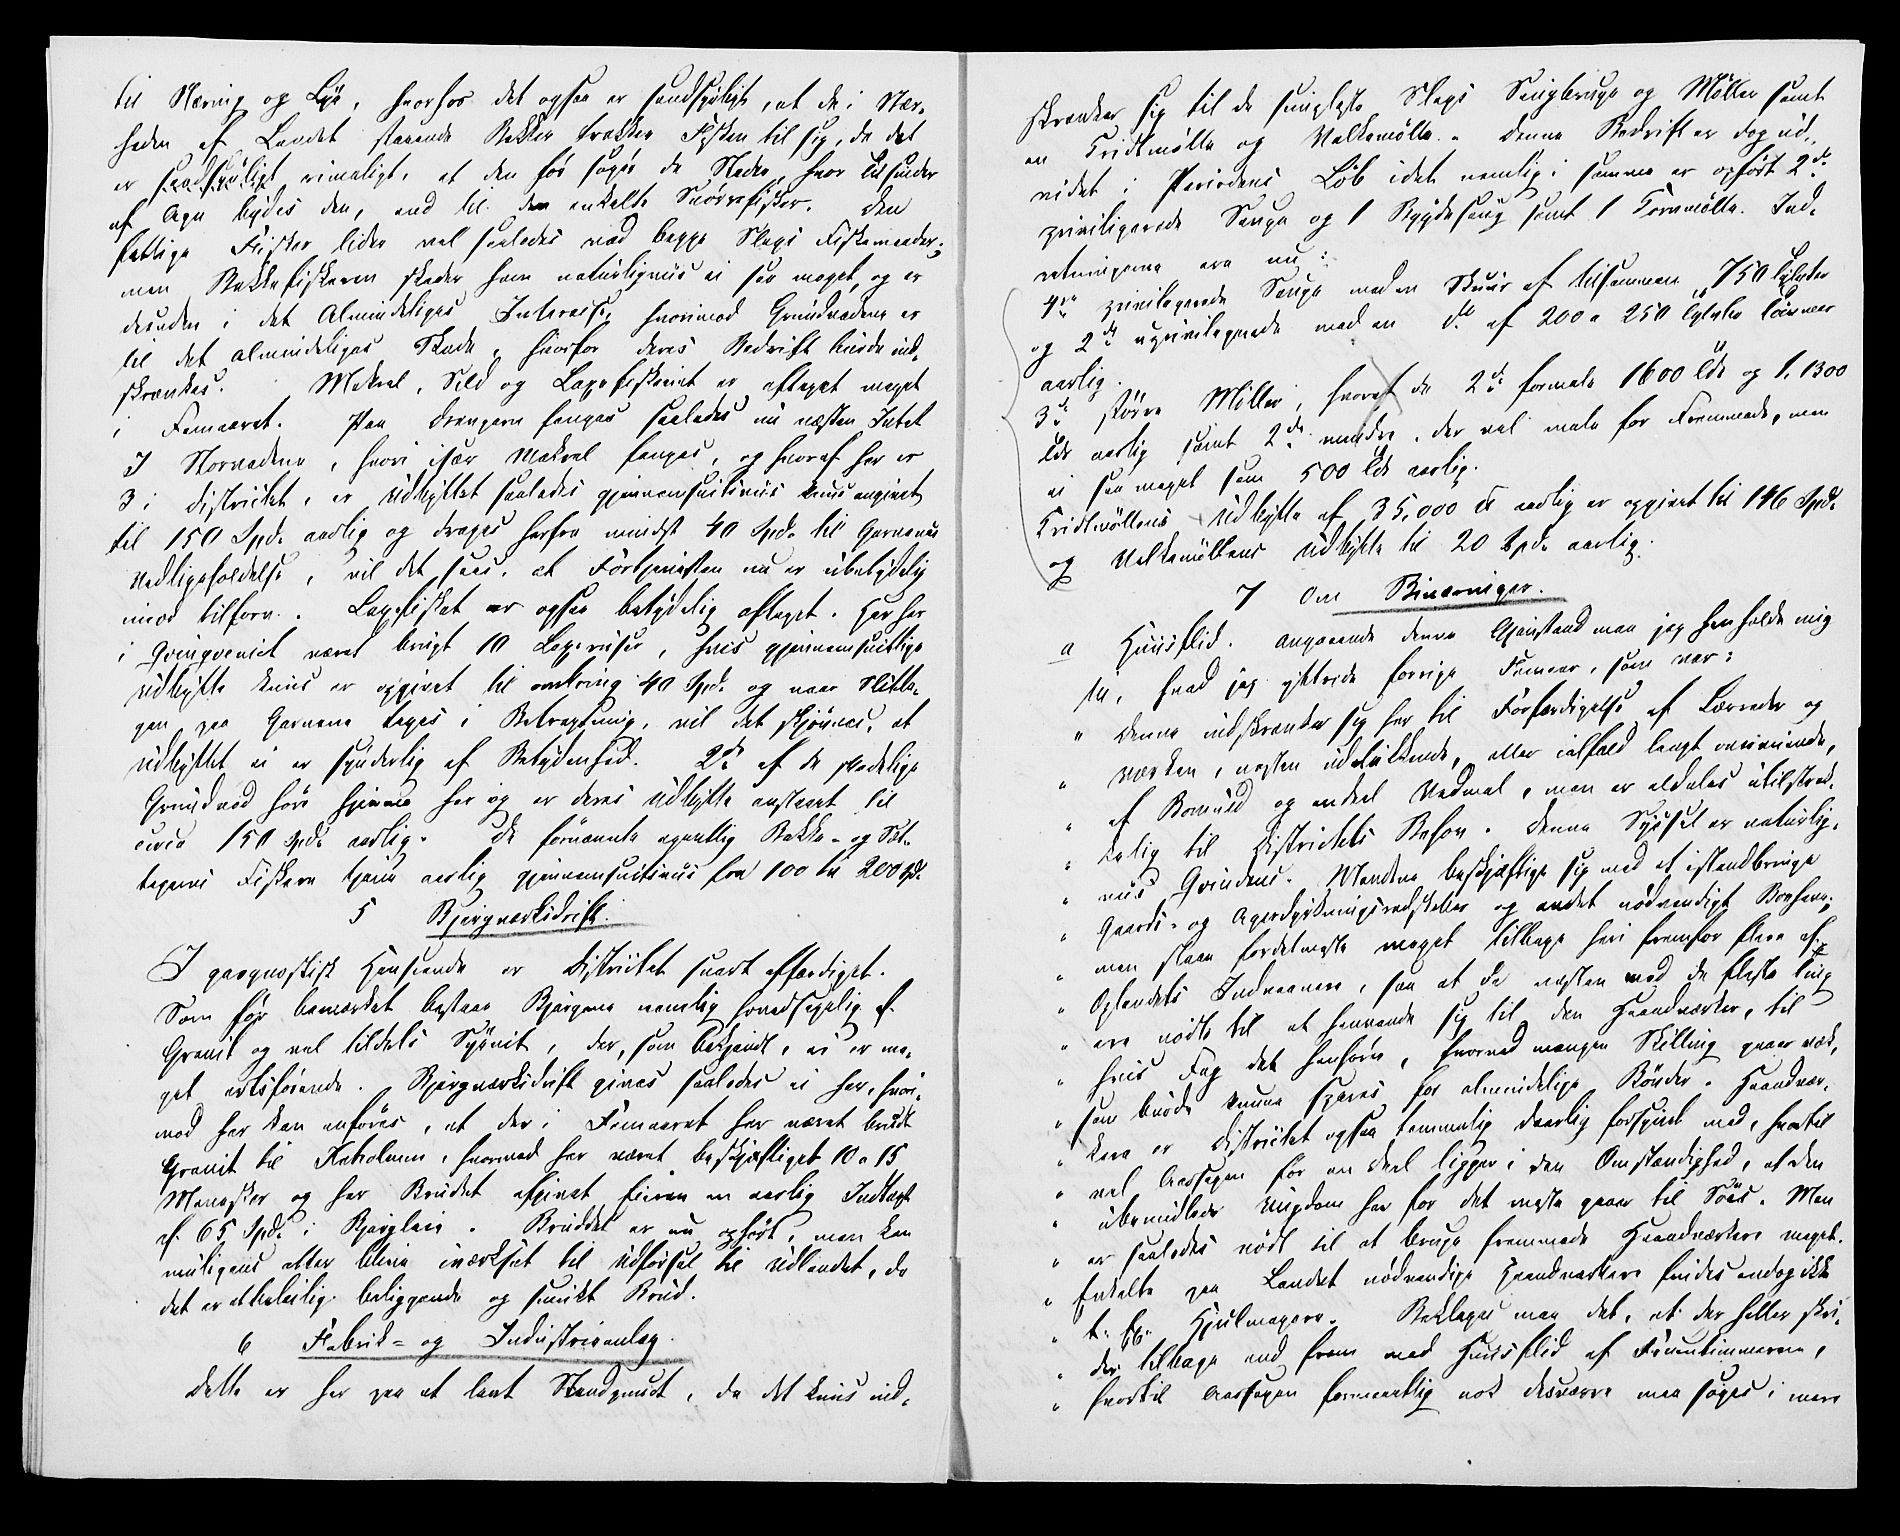 til Næring og Lye, hvorhos det ogsaa er sandsynligt, at de i Nær-
heden af Landet staaende Bakker trække Fisken til sig, da det
er sandsynligt rimeligt, at den før søger de Steder, hvor tusinder
af Agn bydes den, end til den enkelte Snørefisker. Den
fattige Fisker lider vel saaledes ved begge Slags Fiskemaader;
men Bakkefiskeren skader ham naturligviis ei saa meget, og er
desuden i det Almindeliges Interesse, hvorimod Grundvadene er
til det almindeliges Skade, hvorfor deres Bedrift burde ind-
skrænkes. Makrel, Sild og Laxefiskeriet er aftaget meget
i Femaaret. Paa Drengern fanges saaledes nu næsten Intet
I Norvadene, hvori især Makrel fanges, og hvoraf her er
3 i Districtet, er Udbyttet saaledes gjennemsnitsviis kuns angivet
til 150 Spd. aarlig og drages herfra mindst 40 Spd. til Garnenes
Vedligeholdelse, vil det sees, at Fortjenesten nu er ubetydelig
imod tilforn. Laxefisket er ogsaa betydelig aftaget. Her har
i været brugt 10 Laxeruser, hvis gjennemsnitlige
Udbytte kuns er opgivet til omkring 40 Spd. og naar Slitta-
gen paa Garnene tages i Betragtning, vil det skjønnes, at
Udbyttet ei er synderlig af Betydenhed. 2de af de skadelige
Grundvad høre hjemme her og er deres Udbytte ansat til
circa 150 Spd. aarlig. De fornævnte egentlig Bakke- og Søt-
tegerns Fiskere tjene aarlig gjennemsnitsviis fra 100 til 200 Spd.
5 Bjergværksdrift.
I geognostisk Henseende er Districtet snart affærdiget.
Som før bemærket bestaar Bjergene nemlig hovedsagelig af
Granit og vel tildels Syenit, der, som bekjendt, ei er me-
get ertsførende. Bjergværksdrift gives saaledes ei her, hvori-
mod her kan anføres, at der i Femaaret har været brudt
Granit til Katholmen, hvorved har været beskjæftiget 10 a 15
Mennesker og har Bruddet afgivet Eieren en aarlig Indtægt
af 65 Spd. i Bjergleie. Bruddet er nu ophørt, men kan
muligens atter blive iværksat til Udførsel til Udlandet, da
det er et beleilig beliggende og smukt Brud.
6 Fabrik- og Industrieanlæg.
Dette er her paa et lavt Standpunct, da det kuns ind-
skrænker sig til de simpleste Slags Saugbruge og Møller samt
en Kridtmølle og Valkemølle. Denne Bedrift er dog ud-
videt i Periodens Løb idet nemlig i samme er opført 2de
priviligerede Sauge og 1 Bygdesaug samt 1 Kornmølle. Ind-
retningerne ere nu:
4re privilegerede Sauge med en Skuur af tilsammen 750 Tylvter
og 2de uprivilegerede med en do af 200 a 250 Tylvter Tømmer
aarlig.
3de større Møller, hvoraf de 2de formale 1600 Tdr og 1, 1300
Tdr aarlig samt 2de mindre, der vel male for Fremmede, men
ei saa meget som 500 Tdr aarlig.
Kridtmøllens Udbytte af 35,000 ℔ aarlig er opgivet til 146 Spd.
og Valkemøllens Udbytte til 20 Spd. aarlig.
7 Om Binæringer.
a Huusflid. Angaaende denne Gjenstand maa jeg henholde mig
til, hvad jeg yttrede forrige Femaar, som var:
" Denne indskrænker sig her til Forfærdigelse af Lærreder og
" Værken, næsten udelukkende, eller ialfald langt overveiende,
" af Bomuld og endeel Vadmel, men er aldeles utilstræk-
" kelig til Districtets Behov. Denne Syssel er naturlig-
" viis Qvindens. Mændene beskjæftige sig med at istandbringe
" Gaards- og Agerdyrkningsredskaber og andet nødvendigt Bohave,
" men staae fordetmeste meget tilbage heri fremfor flere af
" Oplandets Indvaanere, saa at de næsten med de fleste Ting
" ere nødte til at henvende sig til den Haandværker, til
" hvis Fag det henhører, hvorved mangen Skilling gaaer væk,
" som burde kunne spares for almindelige Bønder. Haandvær-
" kere er Districtet ogsaa temmelig daarlig forsynet med, hvortil
" vel Aarsagen for en Deel ligger i den Omstændighed, at den
" ubemidlede Ungdom her for det meste gaaer til Søes. Man
" er saaledes nødt til at bruge fremmede Haandværkere meget.
" Enkelte paa Landet nødvendige Haandværkere findes endog ikke
" t. Ex. Hjulmagere. Beklages maa det, at der heller skri-
" der tilbage end frem med Huusflid af Fruentimmerne,
" hvortil Aarsagen formeentlig nok desværre maa søges i mere